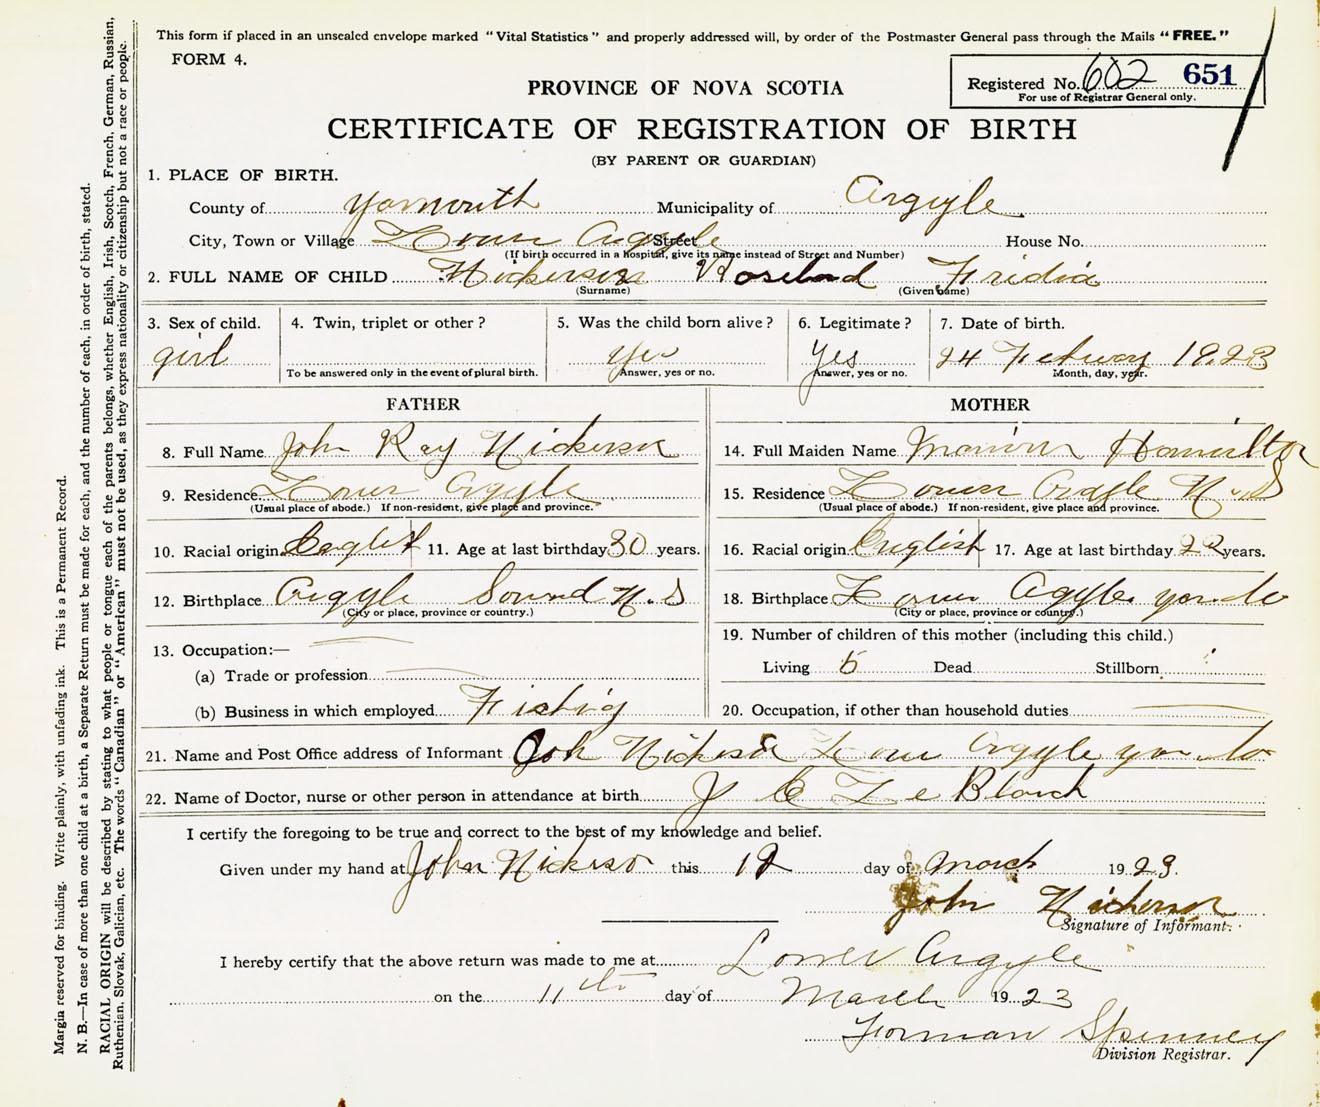 This form if placed in an unsealed envelope marked "Vital Statistics" and properly addressed will, by order of the Postmaster General pass through the Mails "FREE."
FORM 4.
Registered No. 602 651
For use of Registrar General only.
PROVINCE OF NOVA SCOTIA
CERTIFICATE OF REGISTRATION OF BIRTH
(BY PARENT OR GUARDIAN)
1. PLACE OF BIRTH.
County of Yarmouth Municipality of Argyle
City, Town or Village Lower Argyle Street House No.
(If birth occurred in a Hospital, give its name instead of Street and Number)
2. FULL NAME OF CHILD Nickerson Fridia
(Surname) (Given name)
3. Sex of child. 4. Twin, triplet or other? 5. Was the child born alive? 6. Legitimate? 7. Date of birth.
girl yes Yes 24 February 1923
To be answered only in the event of plural birth. Answer, yes or no. Answer, yes or no. Month, day, year.
FATHER MOTHER
8. Full Name John Ray Nickerson 14. Full Maiden Name Hamilton
9. Residence Lower Argyle 15. Residence Lower Argyle N.S
(Usual place of abode.) If non-resident, give place and province. (Usual place of abode.) If non-resident, give place and province.
10. Racial origin 11. Age at last birthday 30 years. 16. Racial origin English 17. Age at last birthday 22 years.
12. Birthplace Argyle Sound N.S 18. Birthplace Lower Argyle
(City or place, province or country.) (City or place, province or country.)
13. Occupation:— 19. Number of children of this mother (including this child.)
(a) Trade or profession Living 5 Dead Stillborn
(b) Business in which employed Fishig 20. Occupation, if other than household duties
21. Name and Post Office address of Informant Joh Nickerson Lower Argyle
22. Name of Doctor, nurse or other person in attendance at birth J C Le Blanch
I certify the foregoing to be true and correct to the best of my knowledge and belief.
Given under my hand at John Nickerso this 12 day of March 1923.
John Nickerson
Signature of Informant.
I hereby certify that the above return was made to me at Lower Argyle
on the 11th day of March 1923
Forman Spinney
Division Registrar.
Margin reserved for binding. Write plainly, with unfading ink. This is a Permanent Record.
N. B.—In case of more than one child at a birth, a Separate Return must be made for each, and the number of each, in order of birth, stated.
RACIAL ORIGIN will be described by stating to what people or tongue each of the parents belongs whether English, Irish, Scotch, French, German, Russian,
Ruthenian, Slovak, Galician, etc. The words "Canadian" or "American" must not be used, as they express nationality or citizenship but not a race or people.